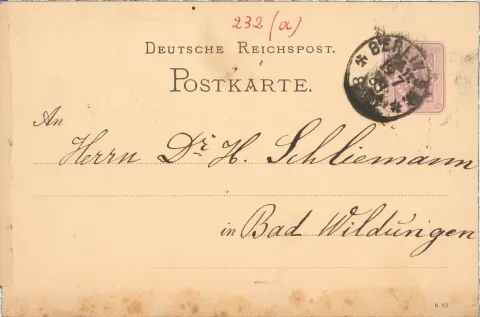 232 (a)
DEUTSCHE REICHSPOST.
POSTKARTE.
BERLIN
An
Herrn Dr. H. Schliemann
in Bad Wildungen